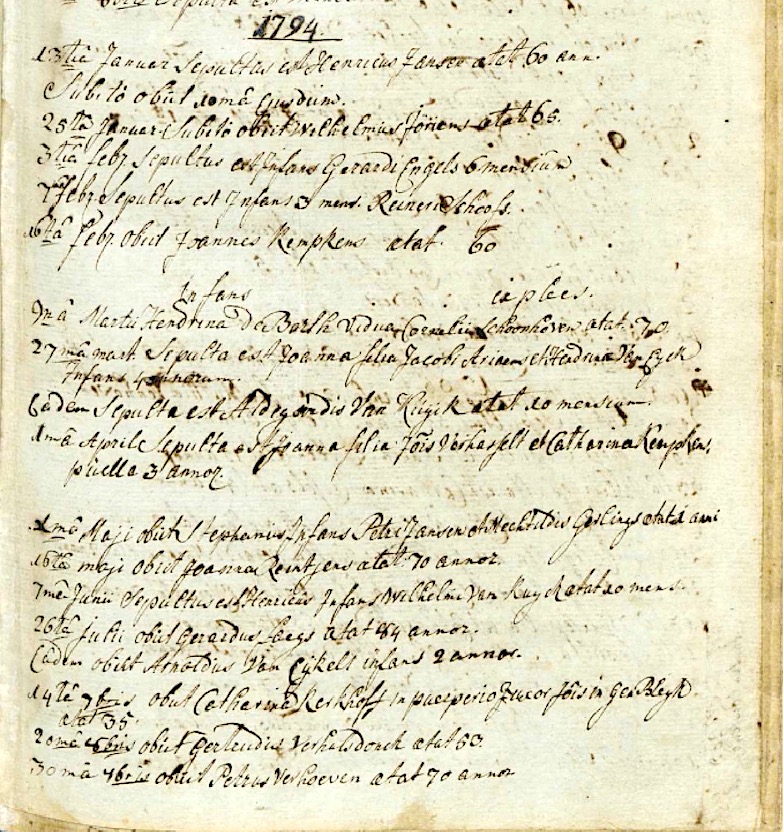 Sepulta est
1794
13tiâ Januar Sepultus est Henricus Jansen ætat 60 ann.
Subitò obiit 10mâ ejusdem.
25tâ Januar Subitò obiit Wilhelmus Joriens ætat 65.
3tiâ febr. Sepultus est Infans Gerardi Engels 6 mensium
7â febr. Sepultus est Infans 3 mens. Reineri Schoofs.
16tâ febr. obiit Joannes Kempkens ætat. 60
Infans
Martii Hendrina De Borsh vidua Cornelii Schoonhoven ætat. 70.
27mâ mart Sepulta est Joanna filia Jacobi Ariaens et Hendrina Van Eyck
Infans 4 annorum.
Eâdem Sepulta est Aldegondis Van Kuyck ætat 10 mensium.
1mâ Aprile Sepulta est Joanna filia Jois Verhasselt et Catharina Kempkens
puella 3 annor.
1mâ Maji obiit Stephanus Infans Petri Jansen et Mechtildis Gerlings ætat 1 anni
16tâ maji obiit Joanna Reintjens ætat 70 annor.
7mâ Junii Sepultus est Henricus Infans Wilhelmi Van Kuyck ætat 10 mens.
26tâ Julii obiit Gerardus ætat 84 annor.
Eâdem obiit Arnoldus Van Eykelt infans 2 annor.
14tâ 7bris obiit Catharina Kerkhoff in puerperio uxor Jois in Gen Bleyk
ætat 35.
20mâ obiit Gertrudis Verhulsdonck ætat 63.
30mâ obiit Petrus Verhoeven ætat 70 annor